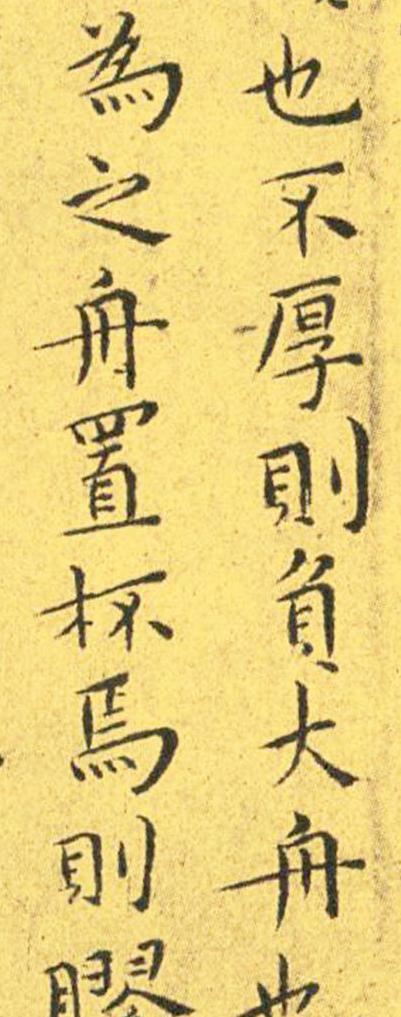 也不厚則負大舟也
為之舟置杯焉則膠